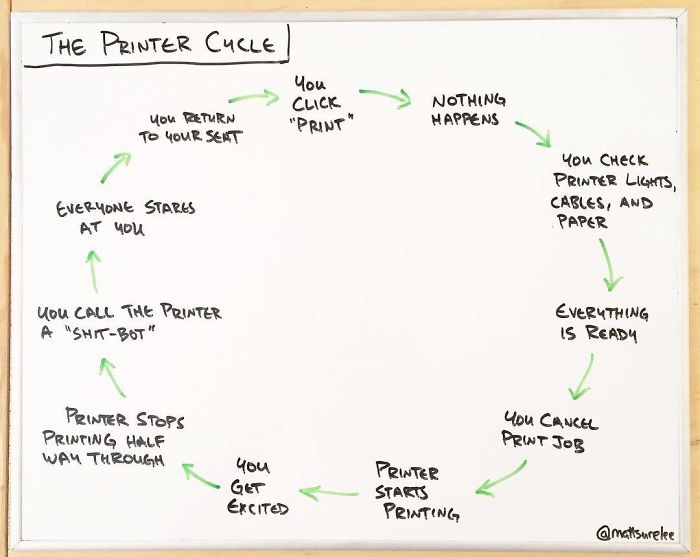 THE PRINTER CYCLE
YOU
CLICK
"PRINT"
NOTHING
HAPPENS
YOU CHECK
PRINTER LIGHTS,
CABLES, AND
PAPER
EVERYTHING
IS READY
YOU CANCEL
PRINT JOB
PRINTER
STARTS
PRINTING
YOU
GET
EXCITED
PRINTER STOPS
PRINTING HALF
WAY THROUGH
YOU CALL THE PRINTER
A "SHIT-BOT"
EVERYONE STARES
AT YOU
YOU RETURN
TO YOUR SEAT
@mattsurelee